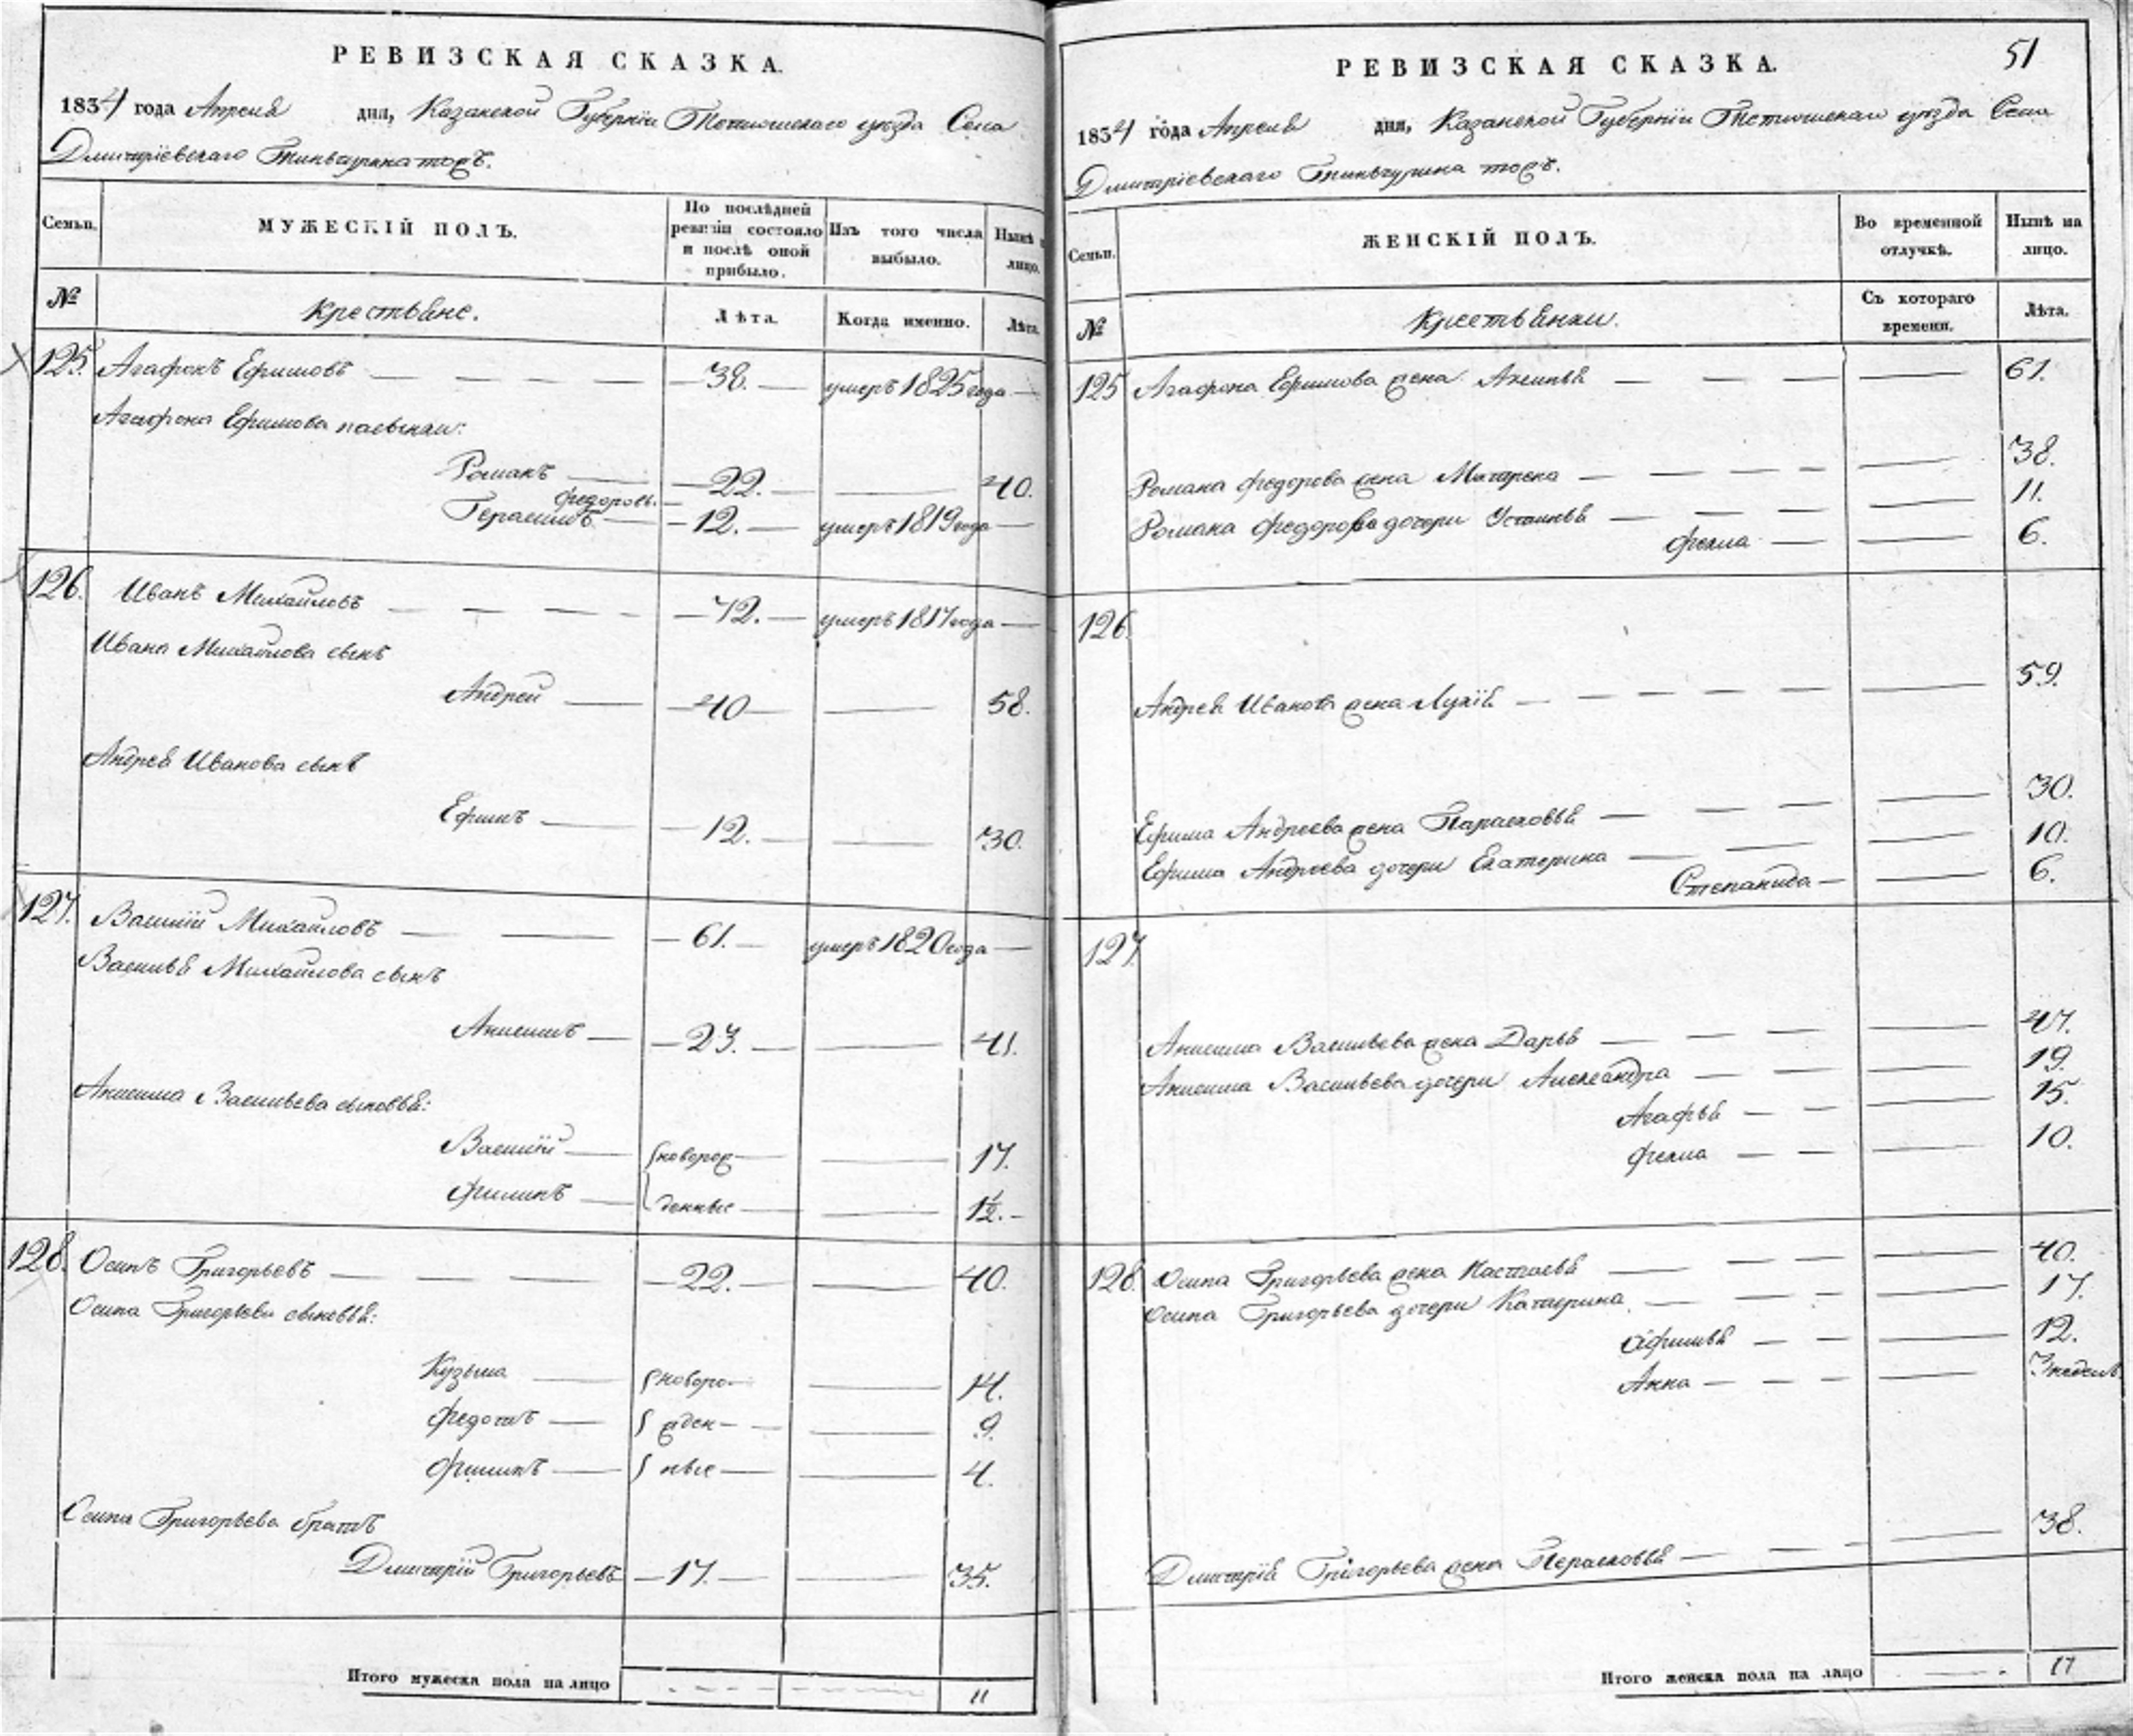 РЕВИЗСКАЯ СКАЗКА.
1834 года Апреля дня, Казанской Губернiи Тетюшскаго уезда Села
Дмитрiевскаго Тинчурина тож.
Семьи. МУЖЕСКIЙ ПОЛЪ. По послѣдней ревизiи состояло и послѣ оной прибыло. Изъ того числа выбыло. Нынѣ на лицо.
№ Крестьяне. Лѣта. Когда именно. Лѣта.
125. Агафонъ Ефимовъ 38. умеръ 1825 года
Агафона Ефимова пасынки:
Романъ 22. 40.
Федоров.
Герасимъ 12. умеръ 1819 года
126. Иванъ Михайловъ 72. умеръ 1817 года
Ивана Михайлова сынъ
Андрей 40 58.
Андрея Иванова сынъ
Ефимъ 12. 30.
127. Василiй Михайловъ 61. умеръ 1820 года
Василья Михайлова сынъ
Анисимъ 23. 41.
Анисима Васильева сыновья:
Василiй новорож 17.
Филипъ денные 1½.
128. Осипъ Григорьевъ 22. 40.
Осипа Григорьева сыновья:
Кузьма новоро 14.
Федотъ жден 9.
Филипъ ные 4.
Осипа Григорьева братъ
Дмитрiй Григорьевъ 17. 35.
Итого мужеска пола на лицо 11
РЕВИЗСКАЯ СКАЗКА.
51
1834 года Апреля дня, Казанской Губернiи Тетюшскаго уезда Села
Дмитрiевскаго Тинчурина тож.
Семьи. ЖЕНСКIЙ ПОЛЪ. Во временной отлучкѣ. Нынѣ на лицо.
№ Крестьянки. Съ котораго времени. Лѣта.
125 Агафона Ефимова жена Аксинья 61.
Романа Федорова жена Матрена 38.
Романа Федорова дочери Устинья 11.
Фекла 6.
126.
Андрея Иванова жена Лукiя 59.
Ефима Андреева жена Парасковья 30.
Ефима Андреева дочери Екатерина 10.
Степанида 6.
127.
Анисима Васильева жена Дарья 47.
Анисима Васильева дочери Александра 19.
Агафья 15.
Фекла 10.
128. Осипа Григорьева жена Настасья 40.
Осипа Григорьева дочери Катерина 17.
Афимья 12.
Анна 3 недель
Дмитрiя Григорьева жена Парасковья 38.
Итого женска пола на лицо 17